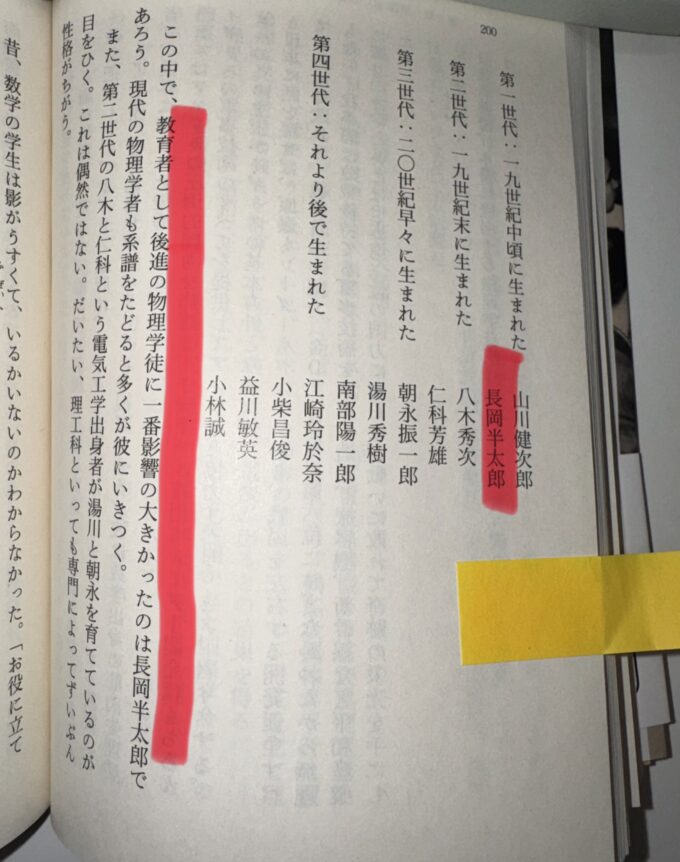 200
第一世代：一九世紀中頃に生まれた 山川健次郎
長岡半太郎
第二世代：一九世紀末に生まれた 八木秀次
仁科芳雄
第三世代：二〇世紀早々に生まれた 朝永振一郎
湯川秀樹
南部陽一郎
第四世代：それより後で生まれた 江崎玲於奈
小柴昌俊
益川敏英
小林誠
この中で、教育者として後進の物理学徒に一番影響の大きかったのは長岡半太郎で
あろう。現代の物理学者も系譜をたどると多くが彼にいきつく。
また、第二世代の八木と仁科という電気工学出身者が湯川と朝永を育てているのが
目をひく。これは偶然ではない。だいたい、理工科といっても専門によってずいぶん
性格がちがう。
昔、数学の学生は影がうすくて、いるかいないのかわからなかった。「お役に立て